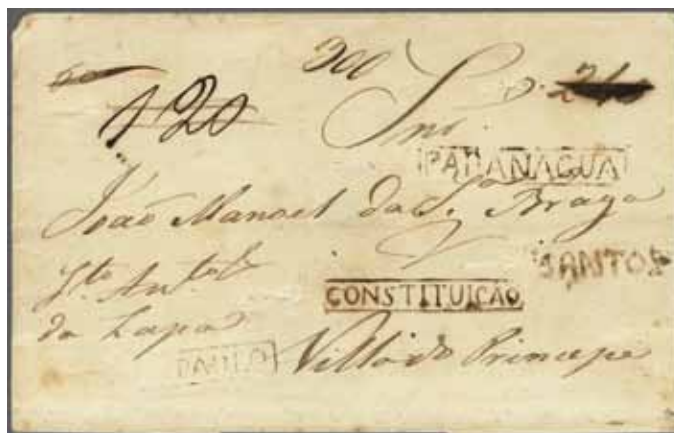 300
120
240
Snr.
PARANAGUA
João Manoel da Sª Braga
SANTOS
Sto Anto
CONSTITUIÇÃO
da Lapa
PAULO
Villa do Principe